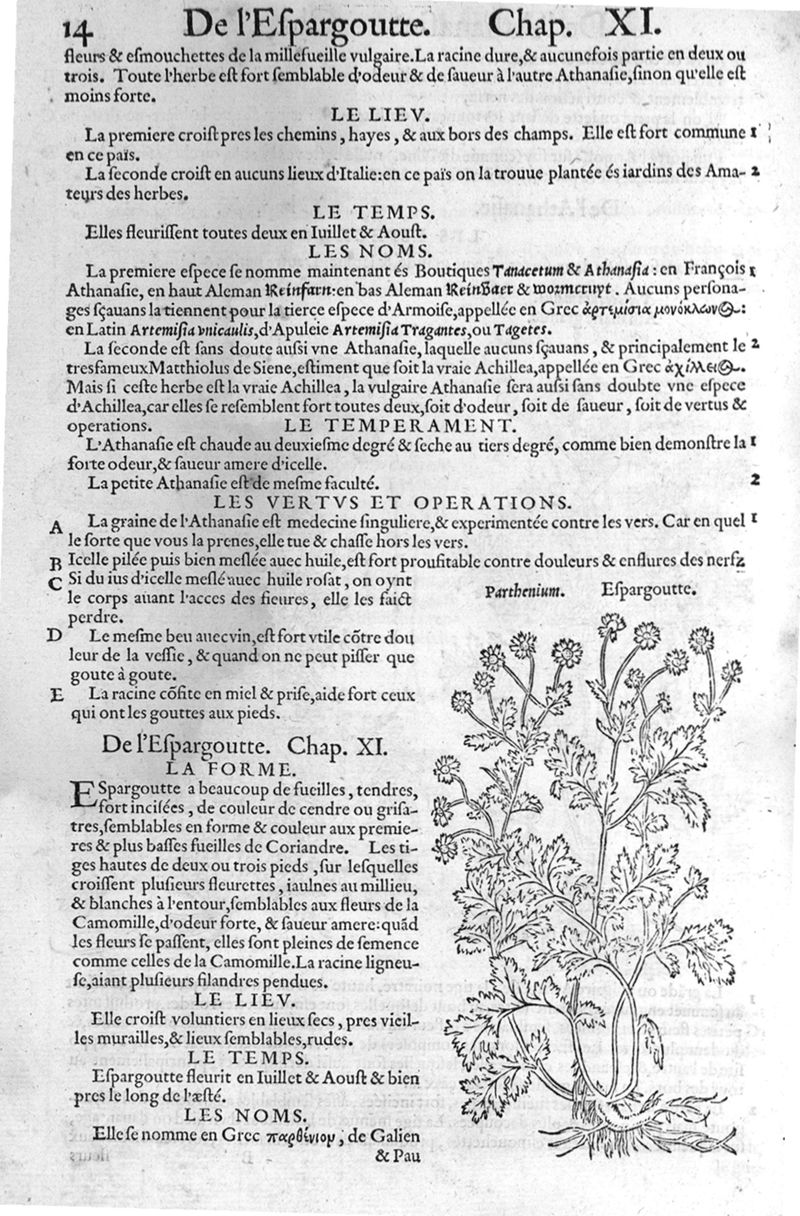 14 De l'Eſpargoutte. Chap. XI.
fleurs & eſmouchettes de la millefueille vulgaire. La racine dure, & aucunefois partie en deux ou
trois. Toute l'herbe eſt fort ſemblable d'odeur & de ſaueur à l'autre Athanaſie, ſinon qu'elle eſt
moins forte.
LE LIEV.
La premiere croiſt pres les chemins, hayes, & aux bors des champs. Elle eſt fort commune 1
en ce païs.
La ſeconde croiſt en aucuns lieux d'Italie: en ce païs on la trouue plantée és iardins des Ama- 2
teurs des herbes.
LE TEMPS.
Elles fleuriſſent toutes deux en Iuillet & Aouſt.
LES NOMS.
La premiere eſpece ſe nomme maintenant és Boutiques Tanacetum & Athanaſia : en François 1
Athanaſie, en haut Aleman Reinfarn: en bas Aleman Reinvaer & wormcruyt. Aucuns perſona-
ges ſçauans la tiennent pour la tierce eſpece d'Armoiſe, appellée en Grec ἀρτεμίσια μονόκλωνος:
en Latin Artemiſia vnicaulis, d'Apuleie Artemiſia Tragantes, ou Tagetes.
La ſeconde eſt ſans doute auſſi vne Athanaſie, laquelle aucuns ſçauans, & principalement le 2
treſfameux Matthiolus de Siene, eſtiment que ſoit la vraie Achillea, appellée en Grec ἀχίλλειος.
Mais ſi ceſte herbe eſt la vraie Achillea, la vulgaire Athanaſie ſera auſſi ſans doubte vne eſpece
d'Achillea, car elles ſe reſemblent fort toutes deux, ſoit d'odeur, ſoit de ſaueur, ſoit de vertus &
operations. LE TEMPERAMENT.
L'Athanaſie eſt chaude au deuxieſme degré & ſeche au tiers degré, comme bien demonſtre la 1
forte odeur, & ſaueur amere d'icelle.
La petite Athanaſie eſt de meſme faculté. 2
LES VERTVS ET OPERATIONS.
A La graine de l'Athanaſie eſt medecine ſinguliere, & experimentée contre les vers. Car en quel 1
le ſorte que vous la prenes, elle tue & chaſſe hors les vers.
B Icelle pilée puis bien meſlée auec huile, eſt fort proufitable contre douleurs & enflures des nerfz
C Si du ius d'icelle meſlé auec huile roſat, on oynt
le corps auant l'acces des fieures, elle les faict
perdre.
D Le meſme beu auec vin, eſt fort vtile cõtre dou
leur de la veſſie, & quand on ne peut piſſer que
goute à goute.
E La racine cõfite en miel & priſe, aide fort ceux
qui ont les gouttes aux pieds.
Parthenium. Eſpargoutte.
De l'Eſpargoutte. Chap. XI.
LA FORME.
ESpargoutte a beaucoup de fueilles, tendres,
fort inciſées, de couleur de cendre ou griſa-
tres, ſemblables en forme & couleur aux premie-
res & plus baſſes fueilles de Coriandre. Les ti-
ges hautes de deux ou trois pieds, ſur leſquelles
croiſſent pluſieurs fleurettes, iaulnes au millieu,
& blanches à l'entour, ſemblables aux fleurs de la
Camomille, d'odeur forte, & ſaueur amere: quãd
les fleurs ſe paſſent, elles ſont pleines de ſemence
comme celles de la Camomille. La racine ligneu-
ſe, aiant pluſieurs filandres pendues.
LE LIEV.
Elle croiſt voluntiers en lieux ſecs, pres vieil-
les murailles, & lieux ſemblables, rudes.
LE TEMPS.
Eſpargoutte fleurit en Iuillet & Aouſt & bien
pres le long de l'æſté.
LES NOMS.
Elle ſe nomme en Grec παρθένιον, de Galien
& Pau